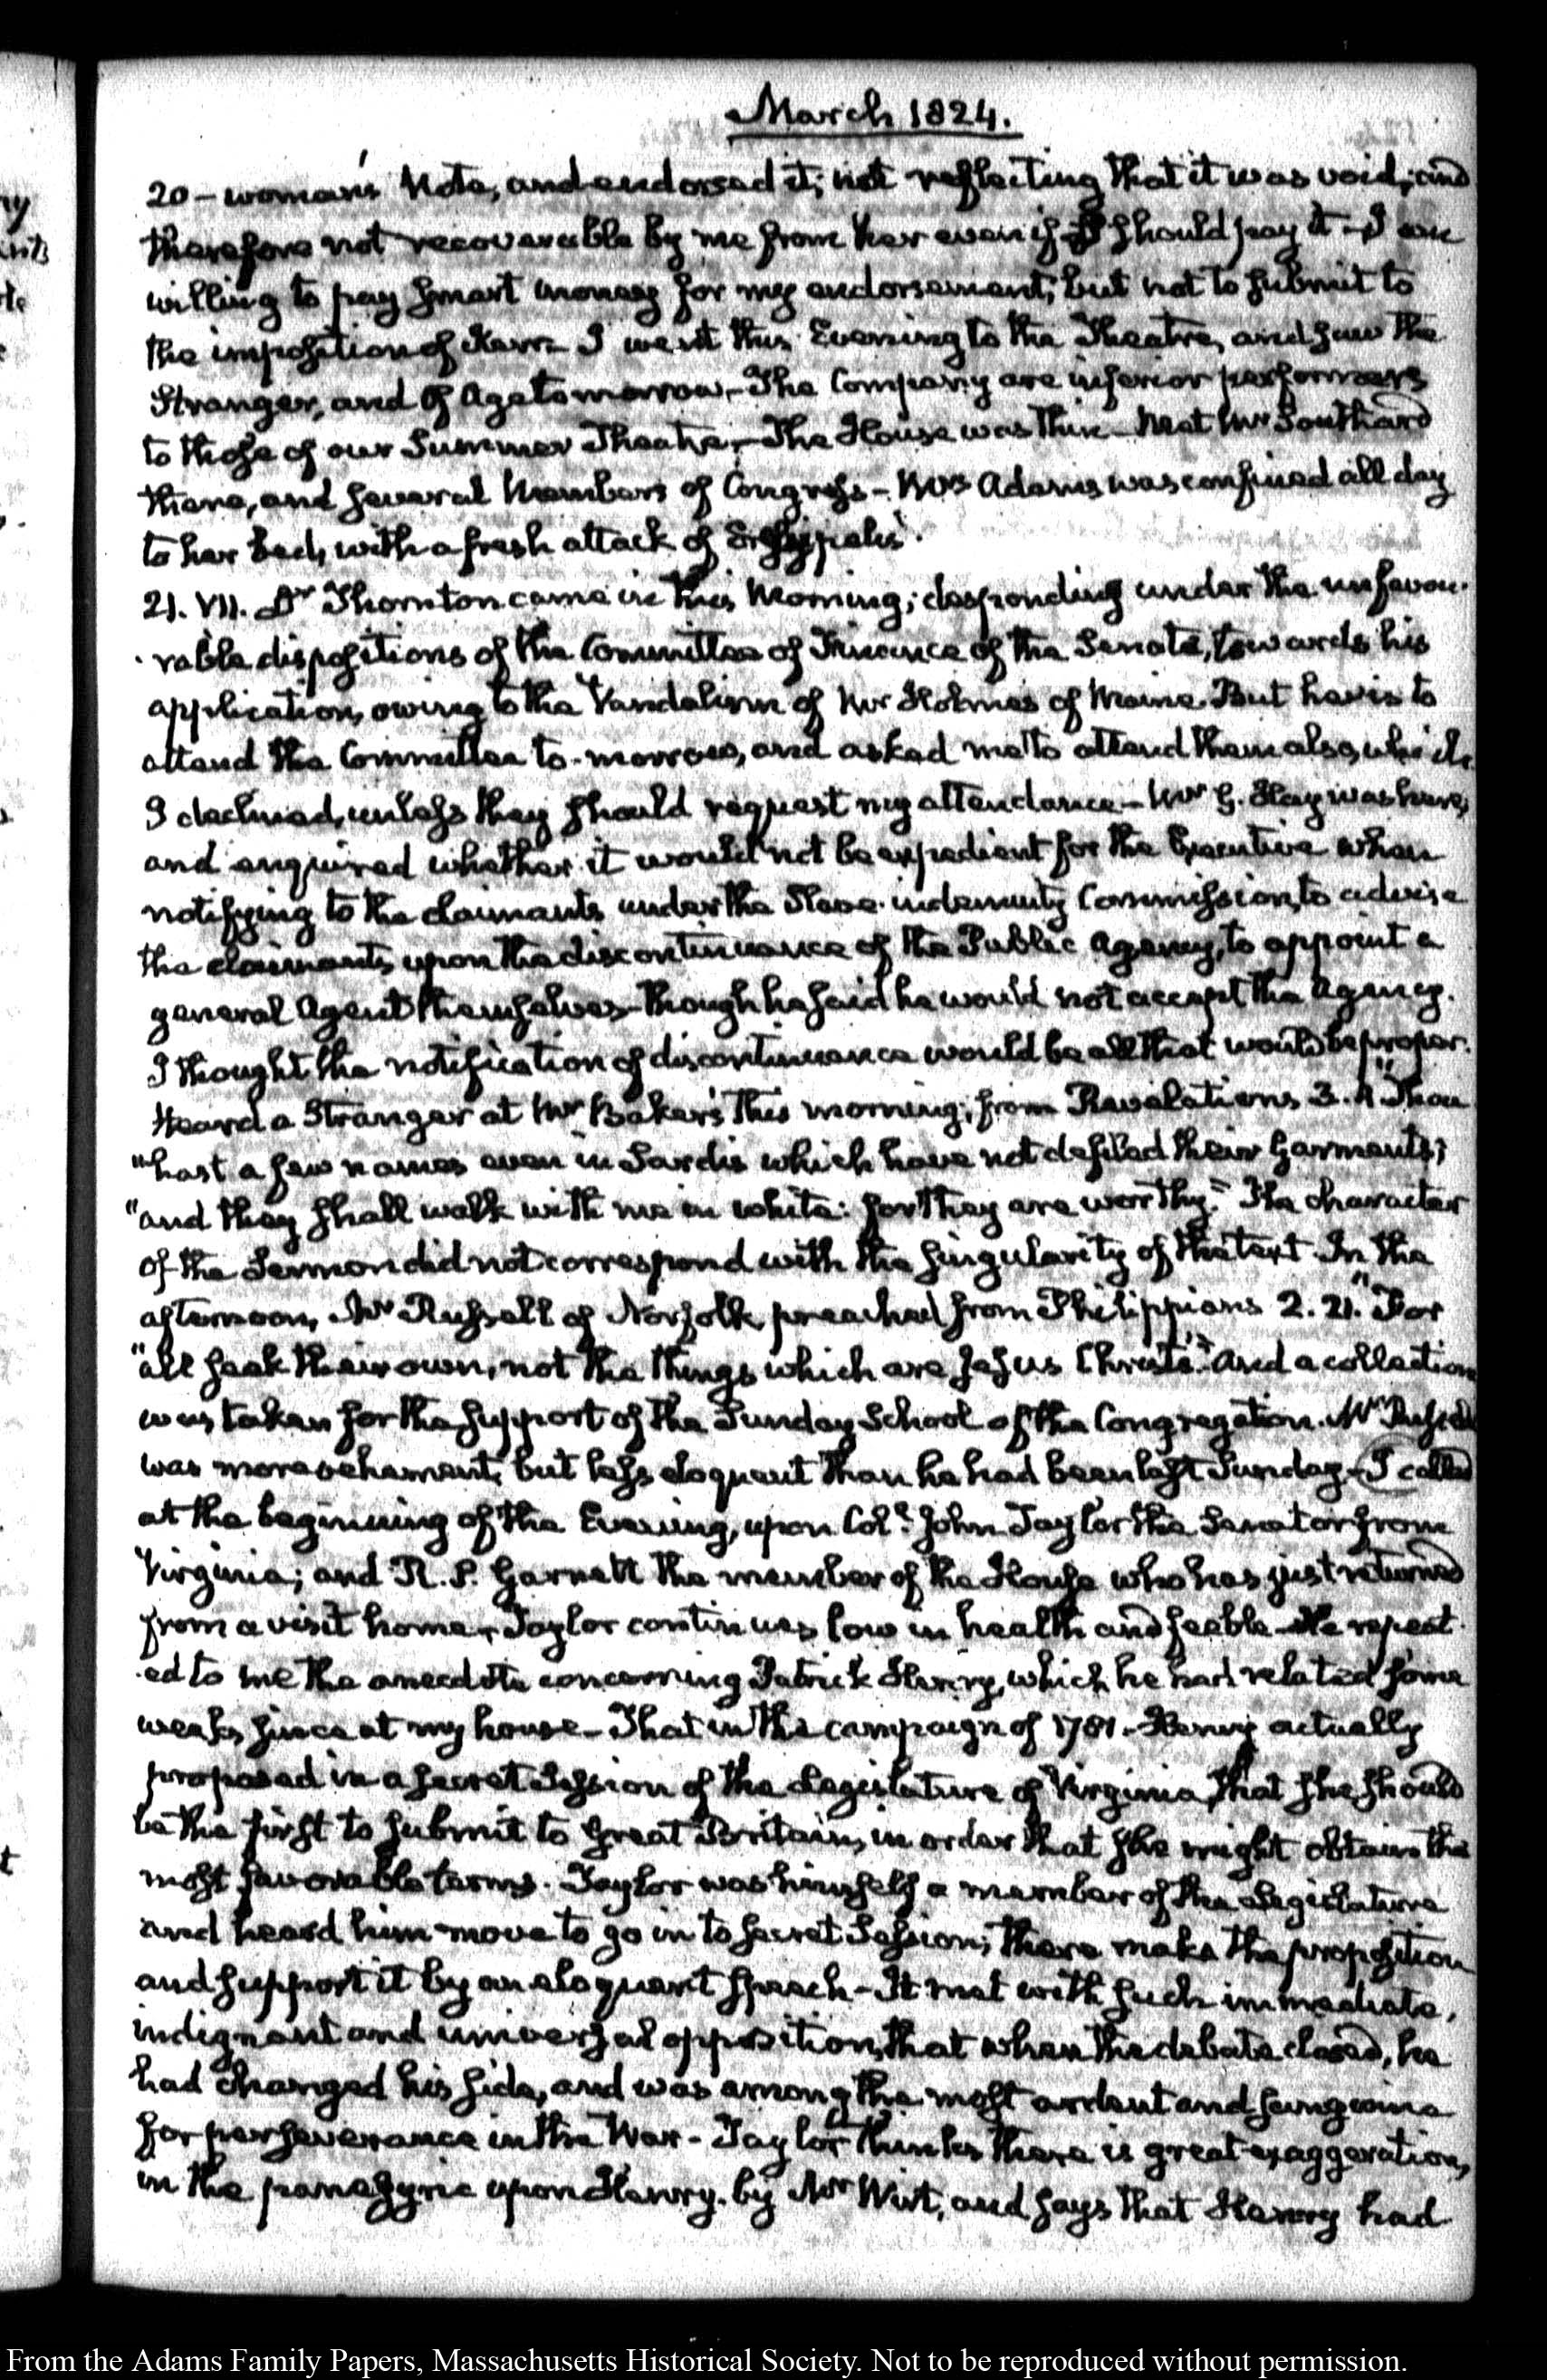 March 1824.
20 - woman's Note, and endorsed it; not reflecting that it was void, and
therefore not recoverable by me from her even if I should pay it - I am
willing to pay smart money for my endorsement, but not to submit to
the imposition of Kerr - I went this Evening to the Theatre, and saw the
Stranger, and Of Age tomorrow - The Company are inferior performers
to those of our Summer Theatre - The House was thin - Met Mr Southard
there, and several Members of Congress - Mrs Adams was confined all day
to her bed, with a fresh attack of Erysipelas.
21. VII. Dr Thornton came in this Morning; desponding under the unfavou-
rable dispositions of the Committee of Finance of the Senate, towards his
application, owing to the Vandalism of Mr Holmes of Maine. But he is to
attend the Committee to-morrow, and asked me to attend them also, which
I declined, unless they should request my attendance - Mr G. Hay was here,
and enquired whether it would not be expedient for the Executive when
notifying to the claimants under the Slave indemnity Commission, to advise
the claimants, upon the discontinuance of the Public Agency, to appoint a
general Agent themselves - though he said he would not accept the Agency.
I thought the notification of discontinuance would be all that would be proper.
Heard a Stranger at Mr Baker's this morning; from Revelations 3. 4 "Thou
"hast a few names even in Sardis which have not defiled their Garments;
"and they shall walk with me in white: for they are worthy." The character
of the Sermon did not correspond with the singularity of the text. In the
afternoon, Mr Russell of Norfolk preached from Philippians 2. 21. "For
"all seek their own, not the things which are Jesus Christ's." And a collection
was taken for the support of the Sunday School of the Congregation. Mr Russell
was more vehement, but less eloquent than he had been last Sunday - I called
at the beginning of the Evening, upon Col. John Taylor the Senator from
Virginia; and R. S. Garnett the member of the House who has just returned
from a visit home - Taylor continues low in health and feeble - He repeat-
ed to me the anecdote concerning Patrick Henry, which he had related some
weeks since at my house - That in the campaign of 1781 - Henry actually
proposed in a secret Session of the Legislature of Virginia, that she should
be the first to submit to Great Britain, in order that she might obtain the
most favorable terms. Taylor was himself a member of the Legislature
and heard him move to go in to secret Session; there make the proposition
and support it by an eloquent speech - It met with such immediate,
indignant and universal opposition, that when the debate closed, he
had changed his side, and was among the most ardent and sanguine
for perseverance in the War - Taylor thinks there is great exaggeration,
in the panegyric upon Henry by Mr Wirt, and says that Henry had
From the Adams Family Papers, Massachusetts Historical Society. Not to be reproduced without permission.